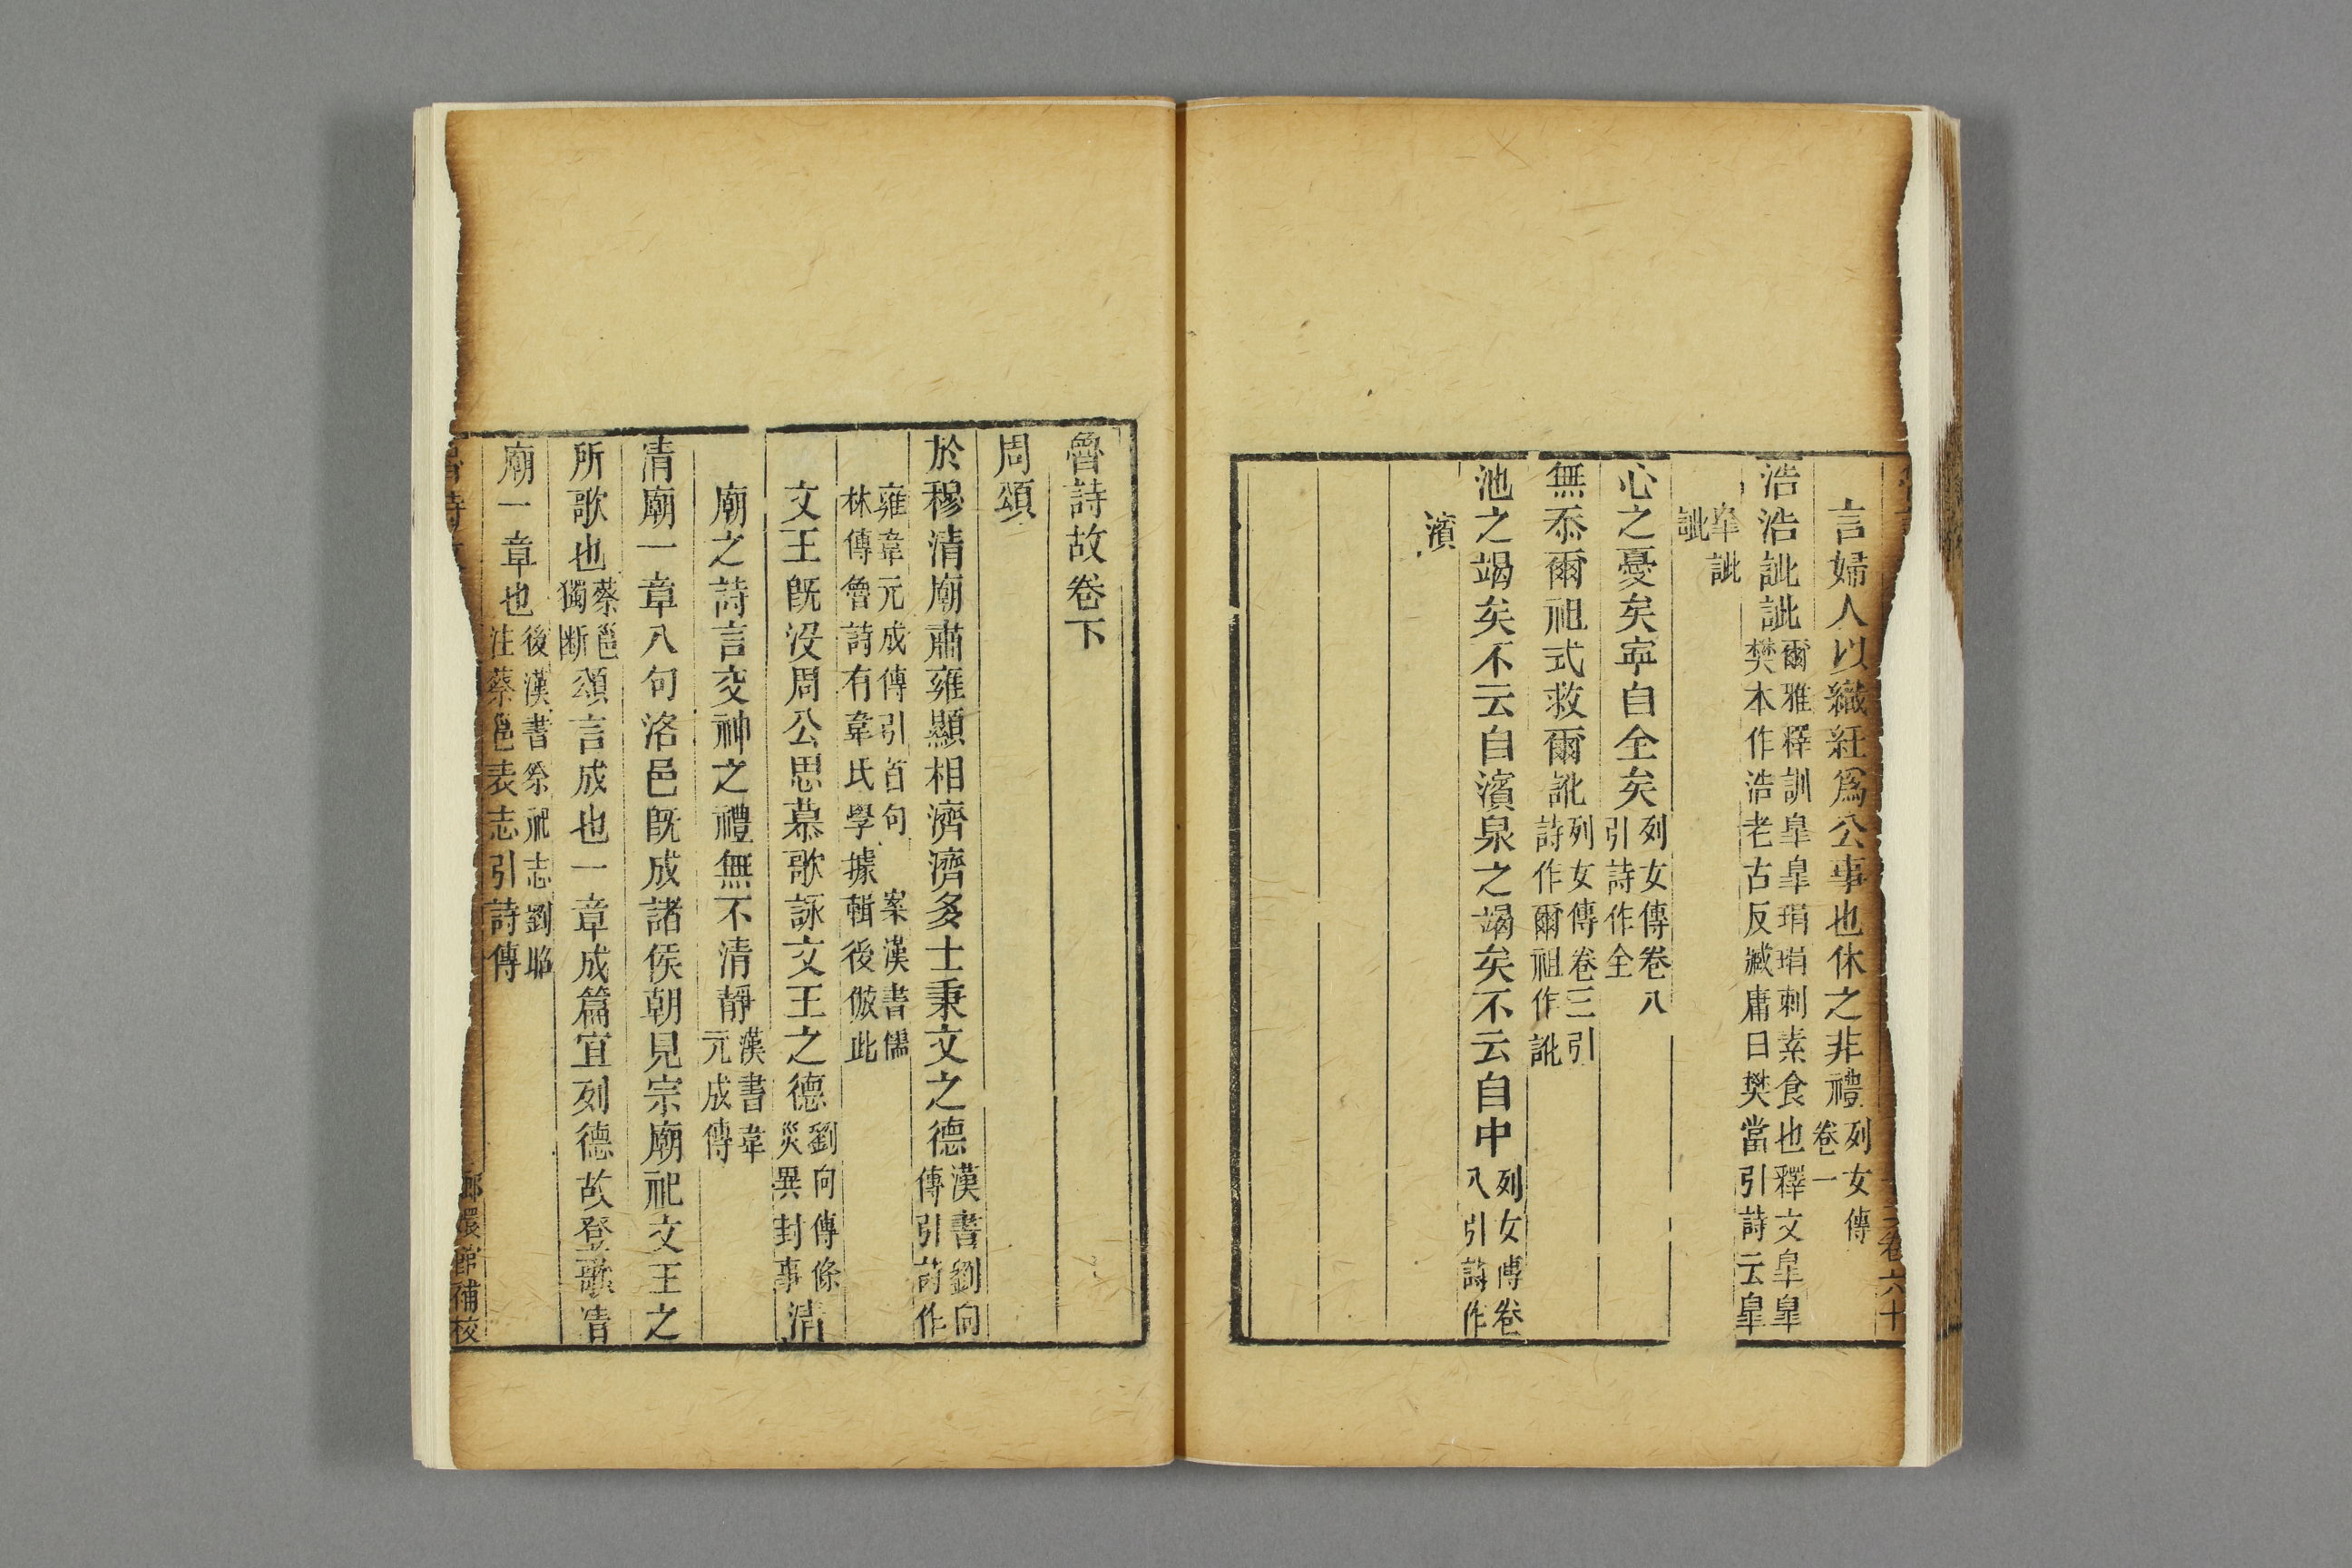 言婦人以織紝爲公事也休之非禮列女傳卷一
浩浩訿訿爾雅釋訓臯臯琄琄刺素食也釋文臯臯樊本作浩老古反臧庸曰樊當引詩云臯
臯訿訿
心之憂矣寧自全矣列女傳卷八引詩作全
無忝爾祖式救爾訛列女傳卷三引詩作爾祖作訛
池之竭矣不云自濱泉之竭矣不云自中列女傳卷八引詩作
濱
卷六十
魯詩故卷下
周頌
於穆清廟肅雍顯相濟濟多士秉文之德漢書劉向傳引詩作
雍韋元成傳引首句 案漢書儒林傳魯詩有韋氏學據輯後倣此
文王既没周公思慕歌詠文王之德劉向傳條災異封事清
廟之詩言交神之禮無不清靜漢書韋元成傳
清廟一章八句洛邑既成諸侯朝見宗廟祀文王之
所歌也蔡邕獨斷頌言成也一章成篇宜列德故登歌清
廟一章也後漢書祭祀志劉昭注蔡邕表志引詩傳
嫏嬛館補校